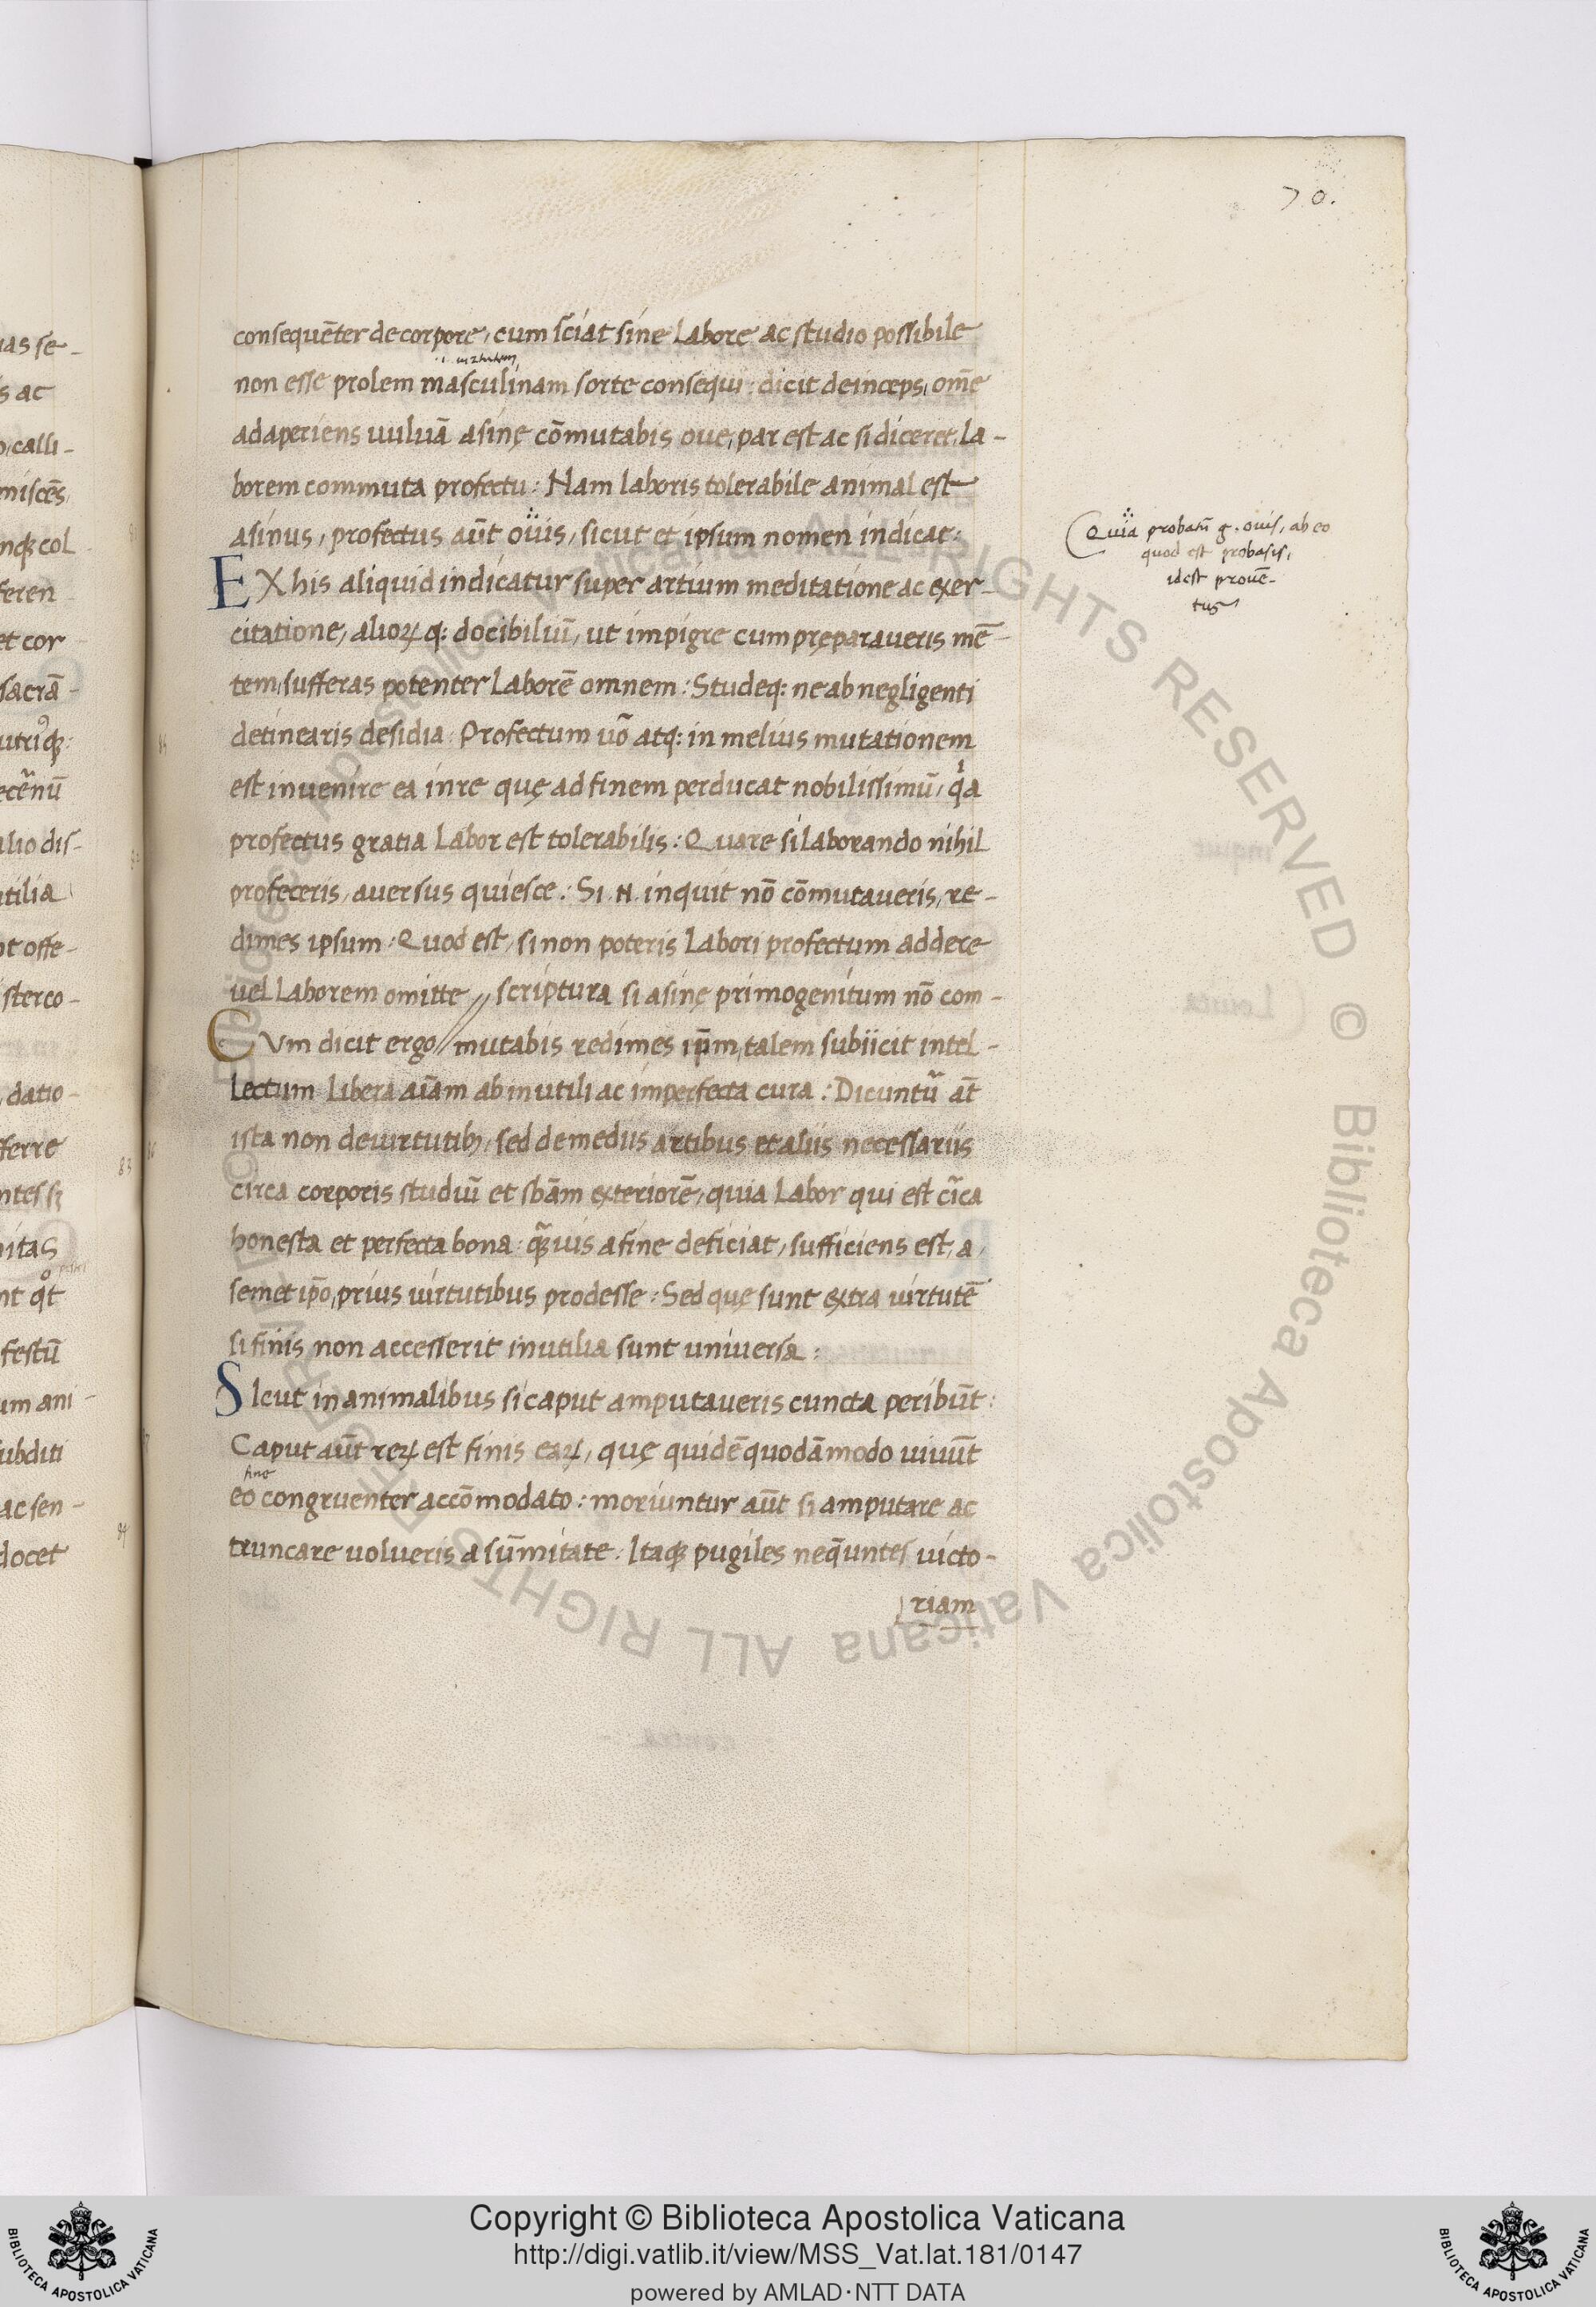 70.
consequēter de corpore, cum sciat sine labore ac studio possibile
non esse prolem masculinam sorte consequi: dicit deinceps, om̄e
adaperiens uuluā asinę cōmutabis oue, par est ac si diceret, la-
borem commuta profectu: Nam laboris tolerabile animal est
asinus, profectus aūt ouis, sicut et ipsum nomen indicat:
Quia probatū g. ouis, ab eo
quod est probasis,
idest prouē-
tus
EX his aliquid indicatur super artium meditatione ac exer-
citatione, alioꝝ q: docibiliuū, ut impigre cum pręparaueris mē-
tem, sufferas potenter laborē omnem: Studeq: ne ab negligenti
detinearis desidia: Profectum uō atq: in melius mutationem
est inuenire ea in re quę ad finem perducat nobilissimū, qa
profectus gratia labor est tolerabilis: Quare si laborando nihil
profeceris, auersus quiesce: Si .N. inquit nō cōmutaueris, re-
dimes ipsum: Quod est, si non poteris labori profectum addere
uel laborem omitte // scriptura si asinę primogenitum nō com-
CVm dicit ergo // mutabis redimes ip̄m, talem subiicit intel-
lectum libera aīam ab inutili ac imperfecta cura: Dicuntū at̄
ista non de uirtutibꝫ, sed de mediis artibus et aliis necessariis
circa corporis studiū et sbām exteriorē, quia labor qui est cīca
honesta et perfecta bona: quāuis a fine deficiat, sufficiens est, a
semet ipō, prius uirtutibus prodesse: Sed quę sunt extra uirtutē
si finis non accesserit inutilia sunt uniuersa:
SIcut in animalibus si caput amputaueris cuncta peribūt:
Caput aūt reꝝ est finis eaꝝ, quę quidē quodāmodo uiuūt
fine
eo congruenter accōmodato: moriuntur aūt si amputare ac
truncare uolueris a sūmitate: Itaqꝫ pugiles neq̄untes uicto-
riam
Copyright © Biblioteca Apostolica Vaticana
http://digi.vatlib.it/view/MSS_Vat.lat.181/0147
powered by AMLAD·NTT DATA